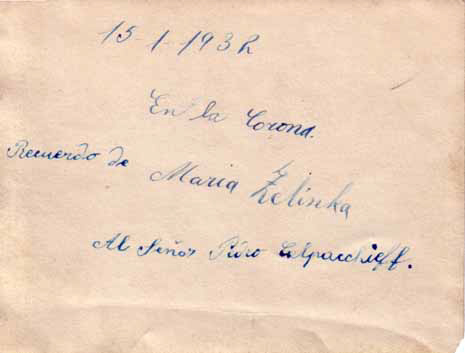 15-1-1932
En la Corona.
Recuerdo de
Maria Zelinka
Al Señor